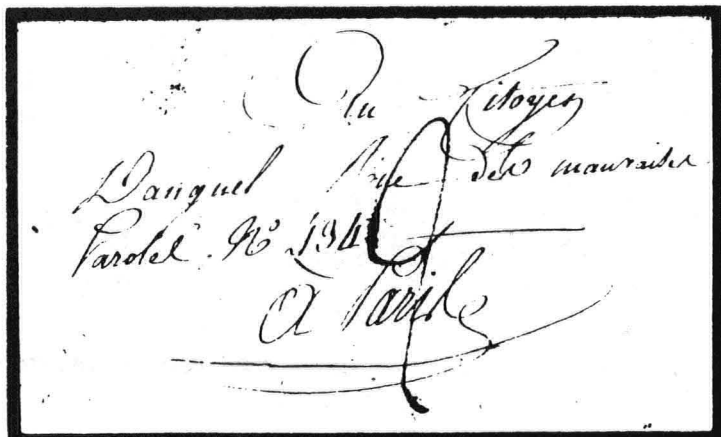 Au Citoyen
Danguel Rue des mauvaises
Paroles. N° 194
A Paris